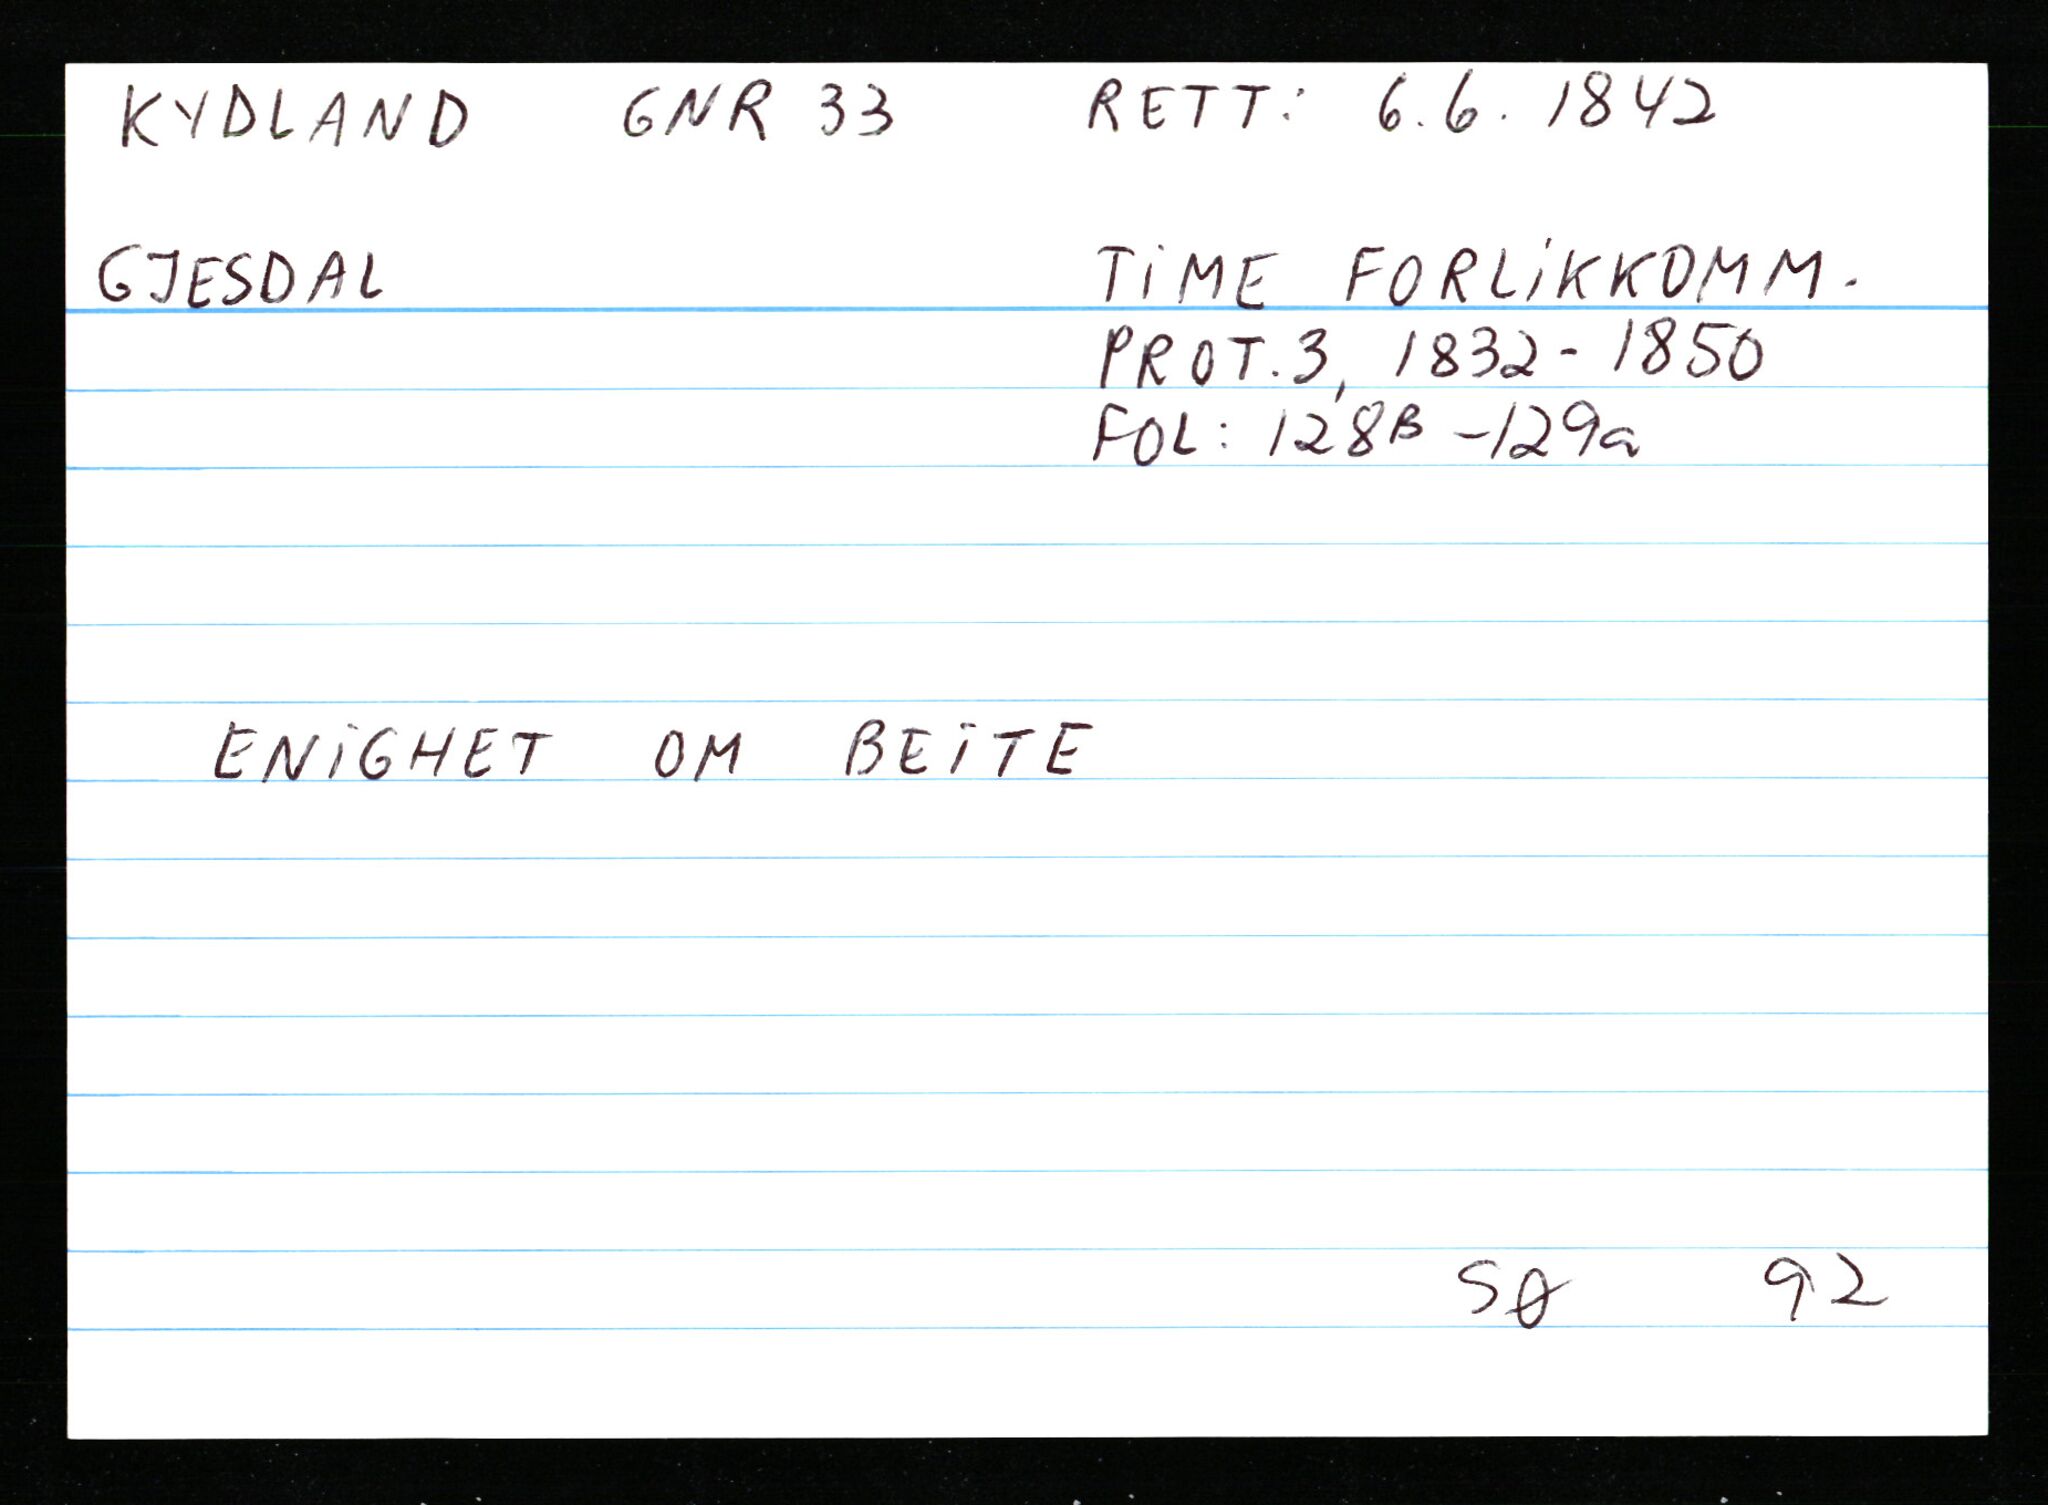 KYDLAND GNR 33 RETT: 6.6.1842
GJESDAL TiME FORLiKKOMM.
PROT.3, 1832-1850
FOL: 128B-129a
ENiGHET OM BEiTE
SØ 92